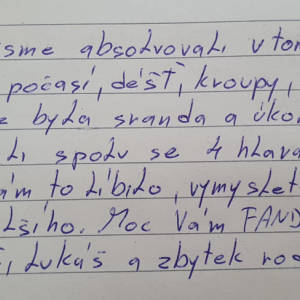 jsme absolvovali v tom
počasí, déšť, kroupy,
e byla sranda a úko
li spolu se 4 hlava
ám to líbilo, vymyslet
lšího. Moc Vám FAND
, Lukáš a zbytek rod